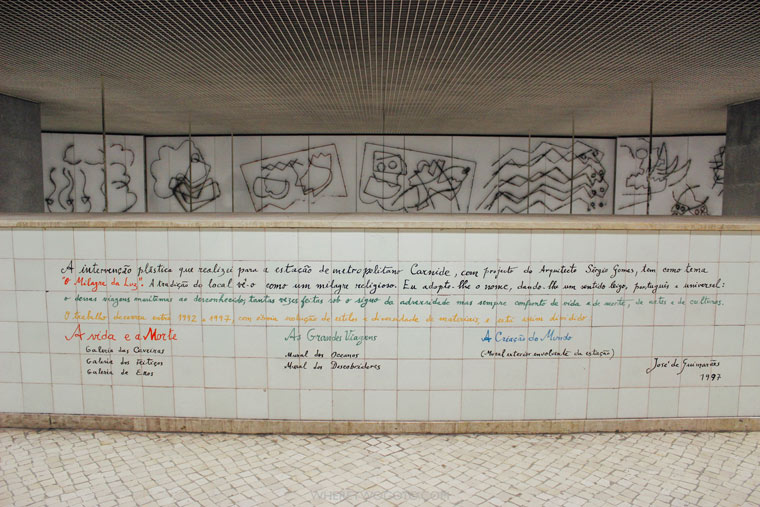 A intervenção plástica que realizei para a estação de metropolitano Carnide, com projecto do Arquitecto Sérgio Gomes, tem como tema
"O Milagre da Luz". A tradição do local vê-o como um milagre religioso. Eu adopto-lhe o nome, dando-lhe um sentido leigo, português e universal:
o dessas viagens marítimas ao desconhecido, tantas vezes feitas sob o signo da adversidade mas sempre confronto de vida e de morte, de artes e de culturas.
O trabalho decorreu entre 1992 e 1997, com óbvia evolução de estilos e diversidade de materiais, e está assim dividido:
A vida e a Morte
Galeria das Caveiras
Galeria dos Feitiços
Galeria de Eros
As Grandes Viagens
Mural dos Oceanos
Mural dos Descobridores
A Criação do Mundo
(Mural exterior envolvente da estação)
José de Guimarães
1997